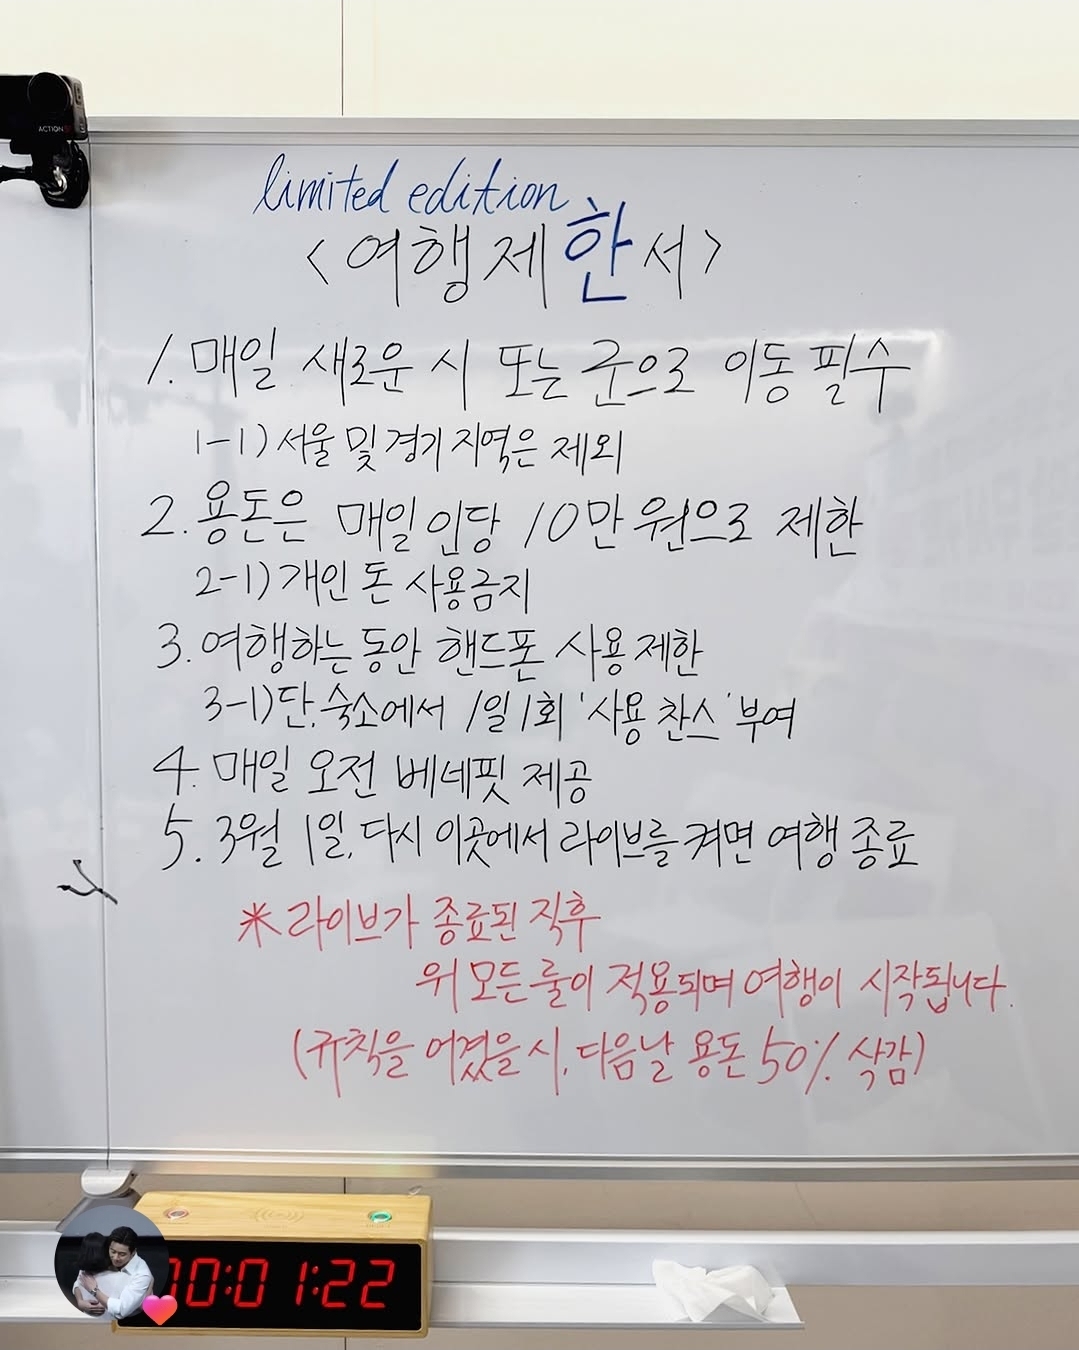 ACTION
limited edition
<여행제한서>
1. 매일 새로운 시 또는 군으로 이동 필수
1-1) 서울 및 경기 지역은 제외
2. 용돈은 매일 인당 10만원으로 제한
2-1) 개인 돈 사용금지
3. 여행하는 동안 핸드폰 사용 제한
3-1) 단, 숙소에서 1일 1회 '사용 찬스' 부여
4. 매일 오전 베네핏 제공
5. 3월 1일, 다시 이곳에서 라이브를 켜면 여행 종료
※ 라이브가 종료된 직후
위 모든 룰이 적용되며 여행이 시작됩니다.
(규칙을 어겼을 시, 다음날 용돈 50% 삭감)
00:01:22